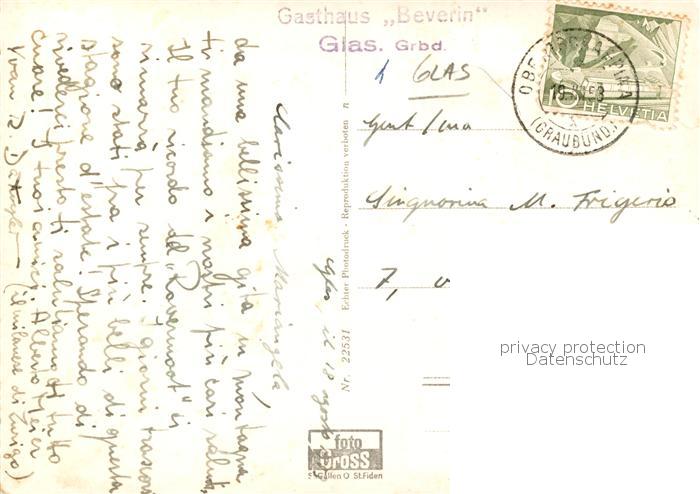 Gasthaus „Beverin"
Glas. Grbd.
GLAS
HELVETIA
10
(GRAUBÜND.)
Gent/ma
Singnorina M. Frigerio
7, v
privacy protection
Datenschutz
Glas, il 18 agosto
Carissima Mariangela,
da una bellissima gita in montagna,
ti mandiamo i nostri più cari saluti,
Il tuo ricordo del
rimarrà per sempre. I giorni trascorsi
sono stati fra i più belli di questa
stagione d'estate! Sperando di
rivederci presto ti salutiamo di tutto
cuore! I tuoi amici: Alberto Meier
(il milanese di Zurigo)
Nr. 22531 Echter Photodruck - Reproduktion verboten
foto
GROSS
St. Gallen O St. Fiden